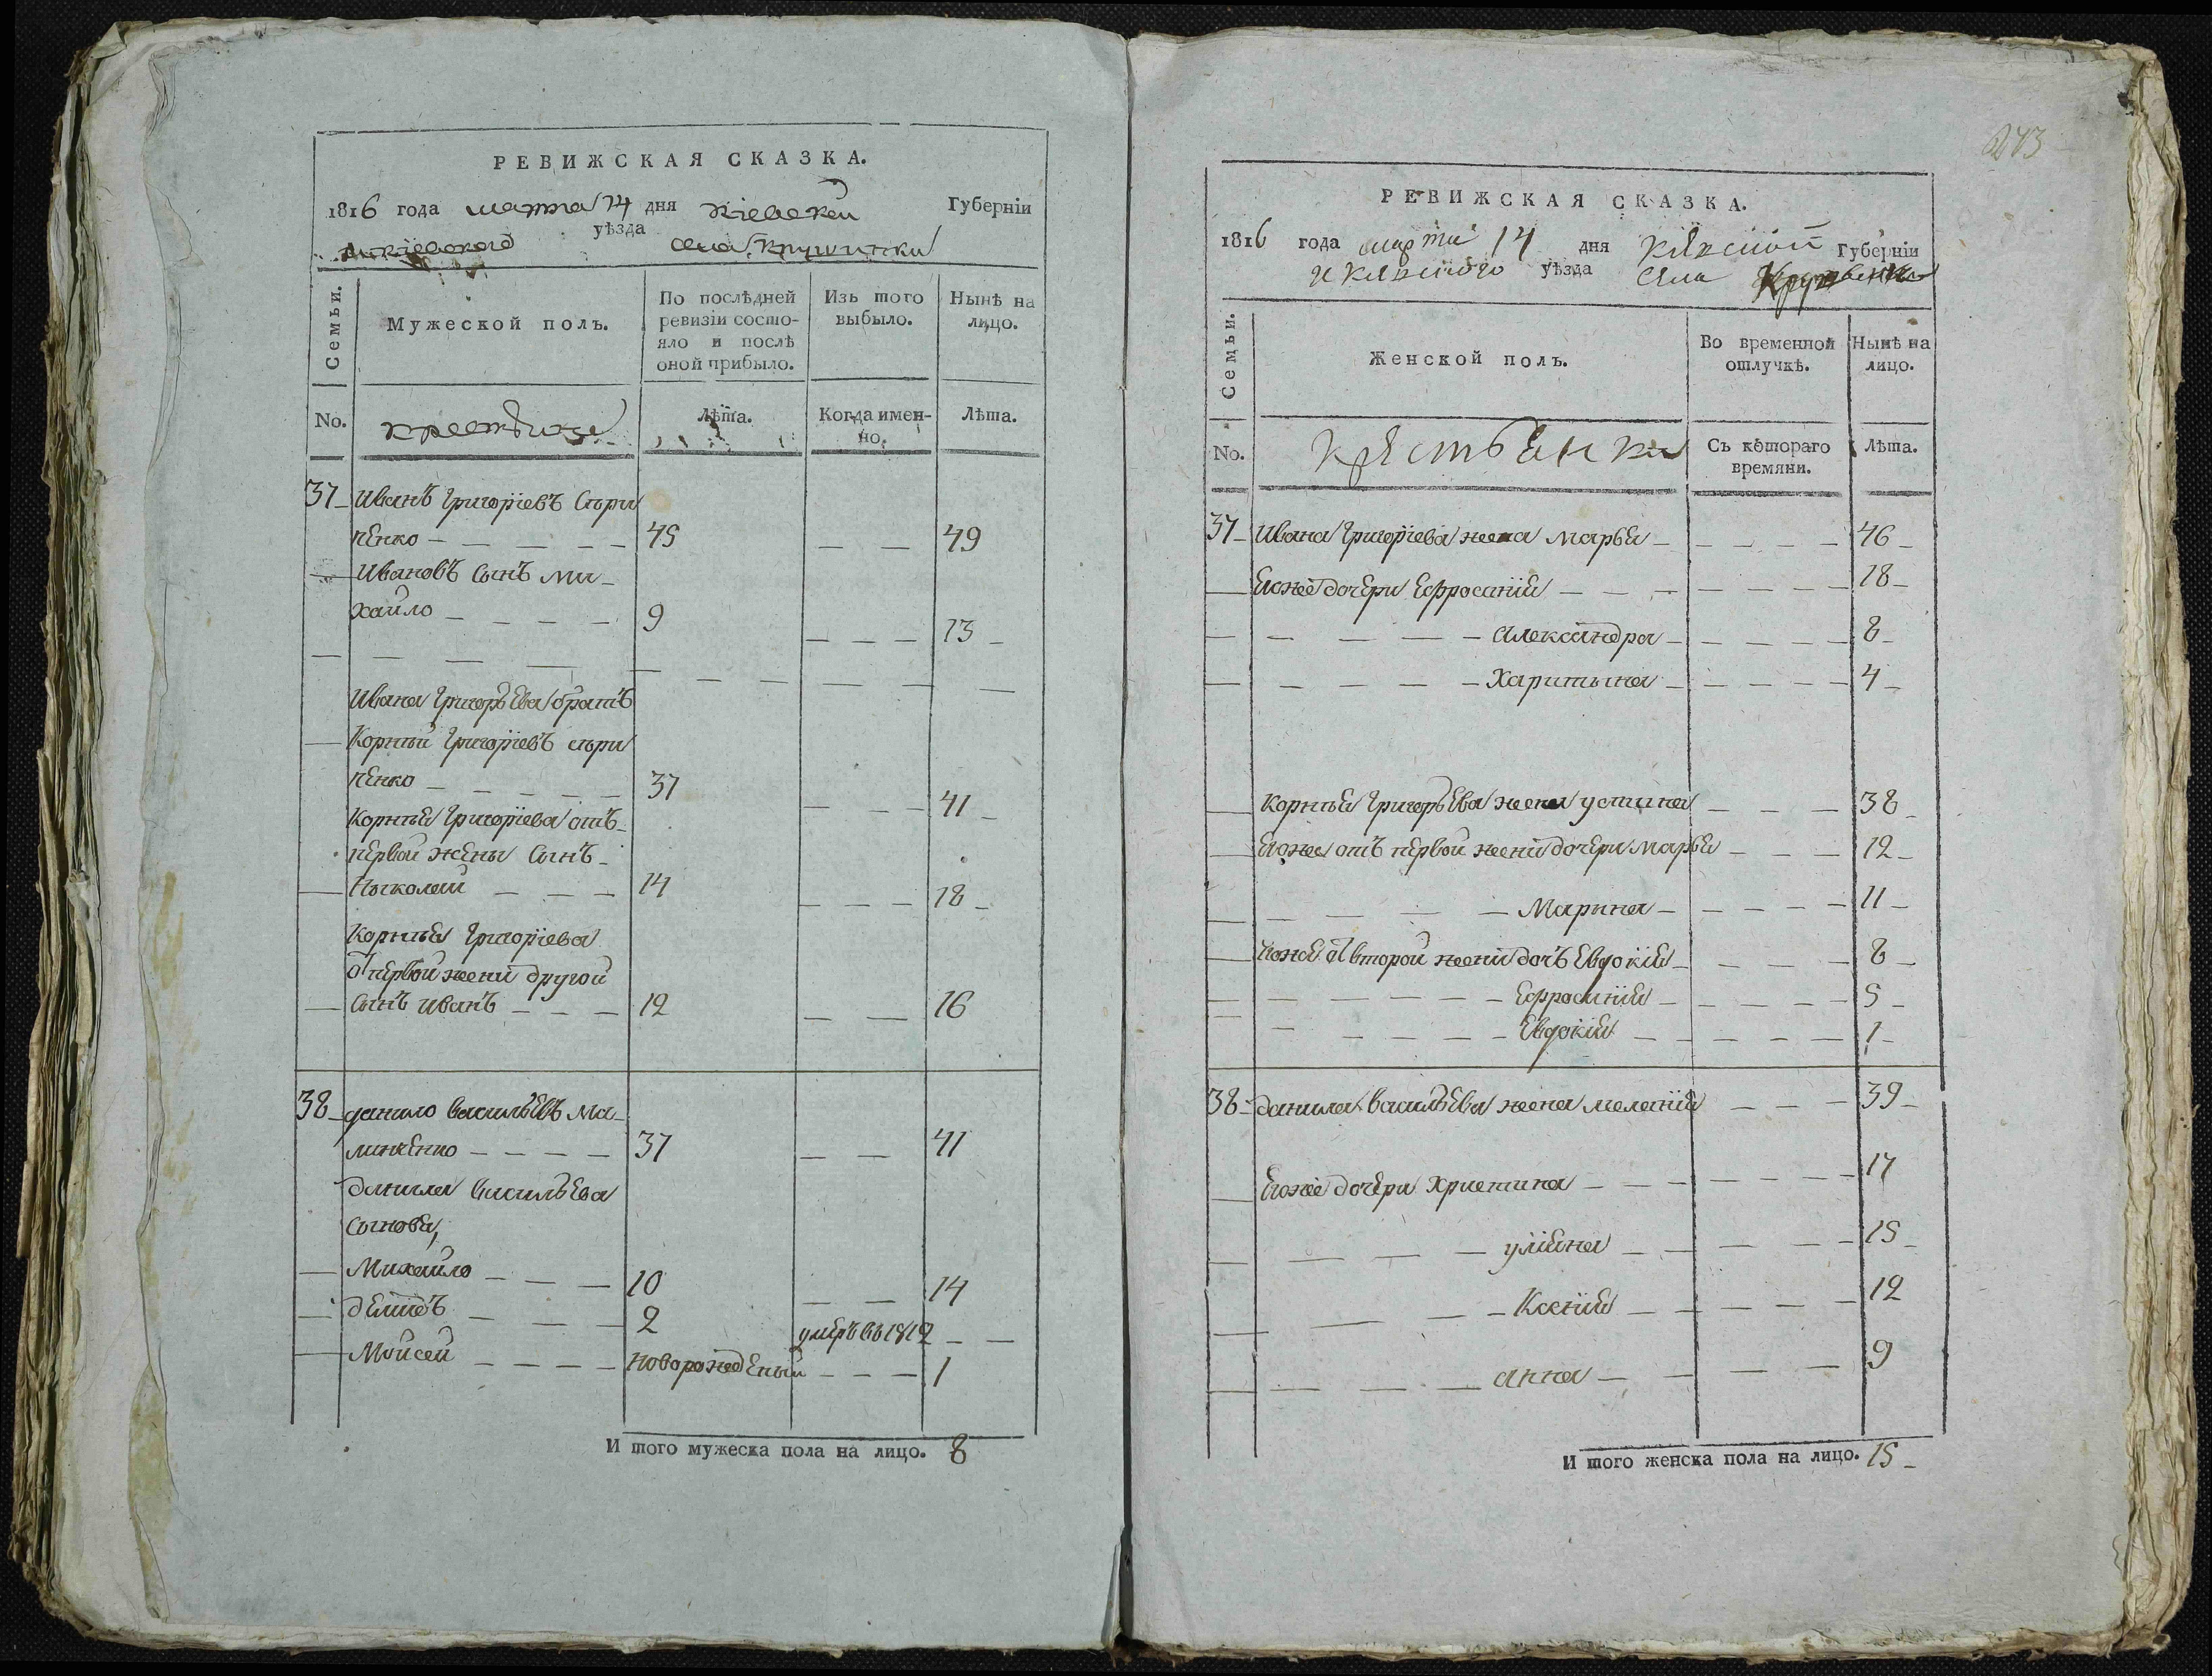 РЕВИЖСКАЯ СКАЗКА.
1816 года марта 14 дня Кіевской Губерніи
и кіевского уѣзда села Крушинки
Семьи.
Мужеской полъ.
По послѣдней ревизіи состо-
яло и послѣ
оной прибыло.
Изъ того
выбыло.
Нынѣ на
лицо.
No.
крестьяне
Лѣта.
Когда имен-
но.
Лѣта.
37 Иванъ Григорїевъ Скри
пЕнко 45 49
Ивановъ Сынъ Ми
хайло 9 13
Ивана Григорьева братъ
Корнѣй Григорїевъ скри
пЕнко 37 41
Корнѣя Григорїева отъ
первой жены Сынъ
Николай 14 18
Корнѣя Григорїева
от первой жены другой
Сынъ Иванъ 12 16
38 данило васильевъ Ма
линЕнко 37 41
данила васильева
сыновя,
Михайло 10 14
дЕмидъ 2 умеръ въ 1812
Мойсей новорожденый 1
И того мужеска пола на лицо. 8
243
РЕВИЖСКАЯ СКАЗКА.
1816 года марта 14 дня Кіевской Губерніи
и Кіевского уѣзда села
Семьи.
Женской полъ.
Во временной
отлучкѣ.
Нынѣ на
лицо.
No.
крестьянки
Съ котораго
времяни.
Лѣта.
37 Ивана Григорїева жена Марья 46
Егоже дочери Ефросинїя 18
Александра 8
Харитына 4
Корнѣя Григорьева жена устина 38
Егоже отъ первой жены дочери Марья 12
Марина 11
Егоже от второй жены дочъ Евдокїя 8
Ефросинїя 5
Евдокїя 1
38 данила васильева жена меланїя 39
Егоже дочери Христина 17
улїяна 15
Ксенїя 12
анна 9
И того женска пола на лицо. 15